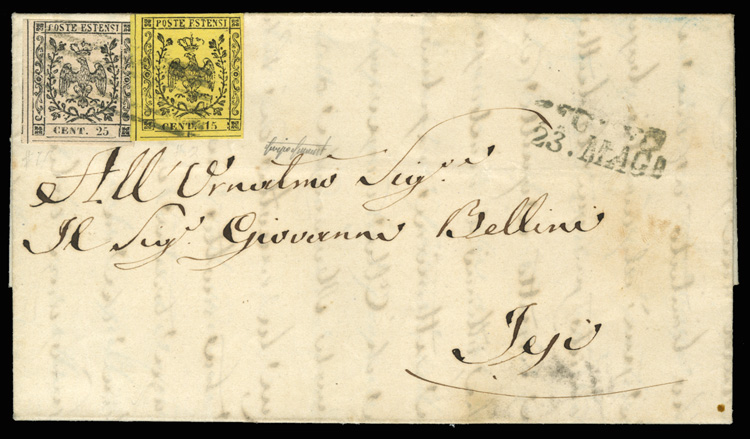 POSTE ESTENSI
CENT. 25
POSTE ESTENSI
CENT. 15
23. MAGG
All' Ornatmo Sigre
Il Sigr Giovanni Bellini
Jesi